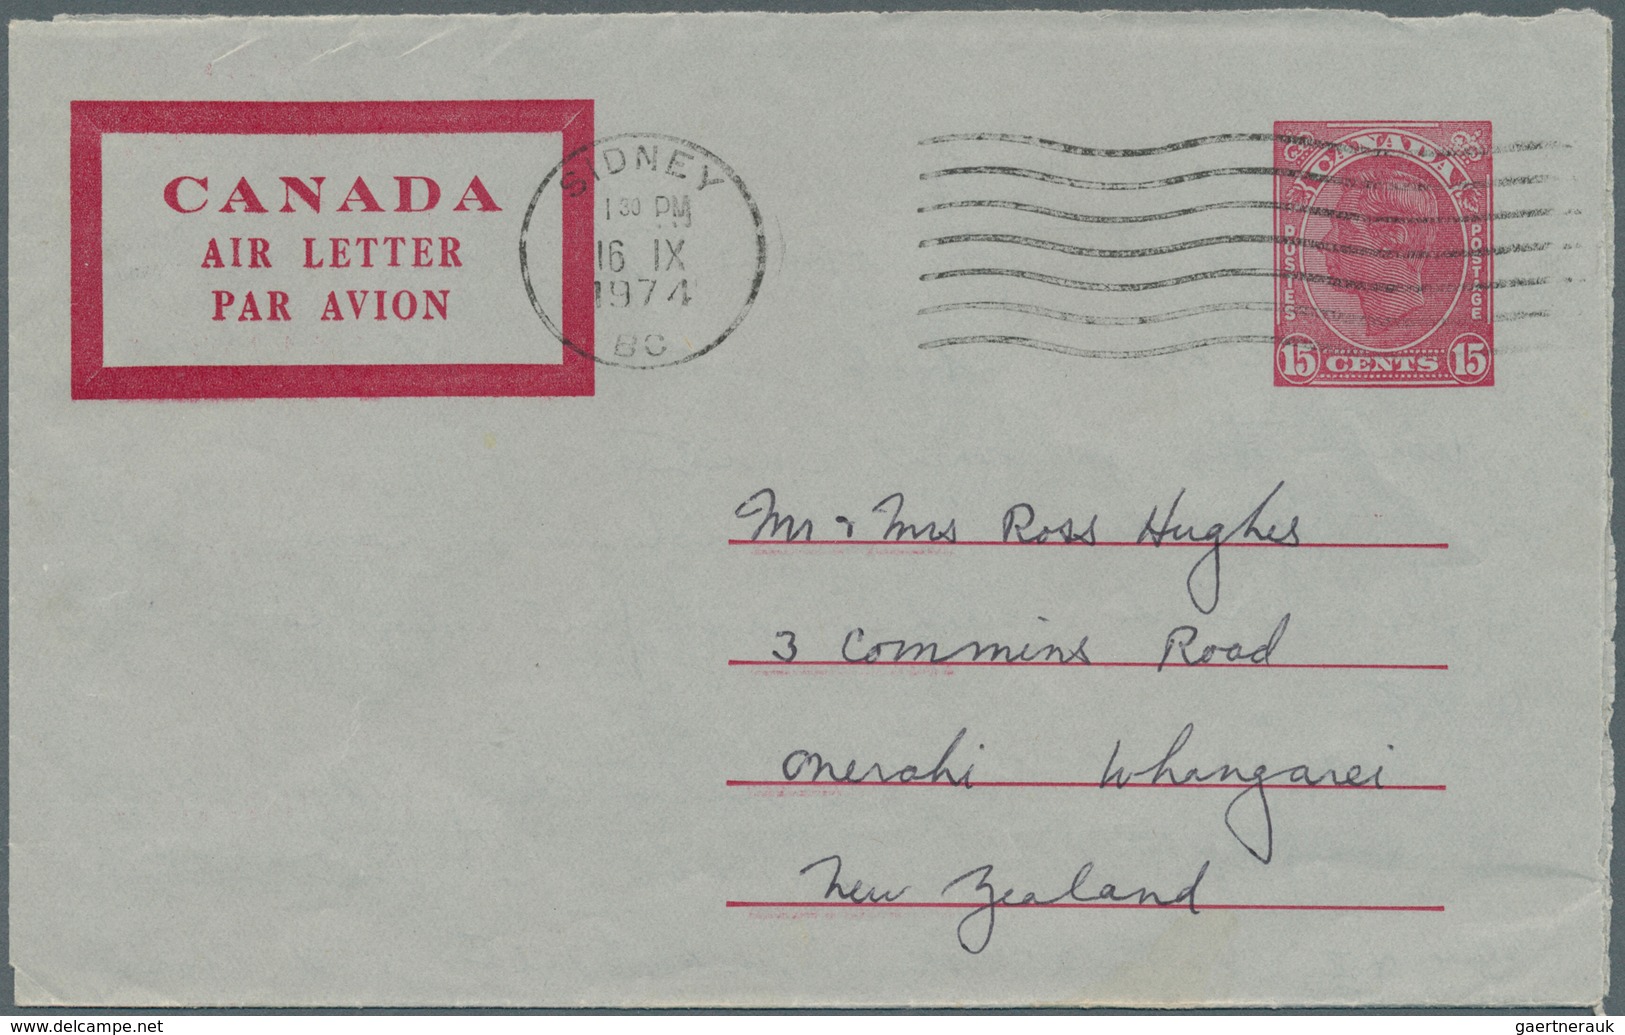 CANADA
AIR LETTER
PAR AVION
SIDNEY
1 30 PM
16 IX
1974
BC
CANADA
POSTES
POSTAGE
15 CENTS 15
Mr & Mrs Ross Hughes
3 Commins Road
Onerahi Whangarei
New Zealand
www.delcampe.net
gaertnerauk